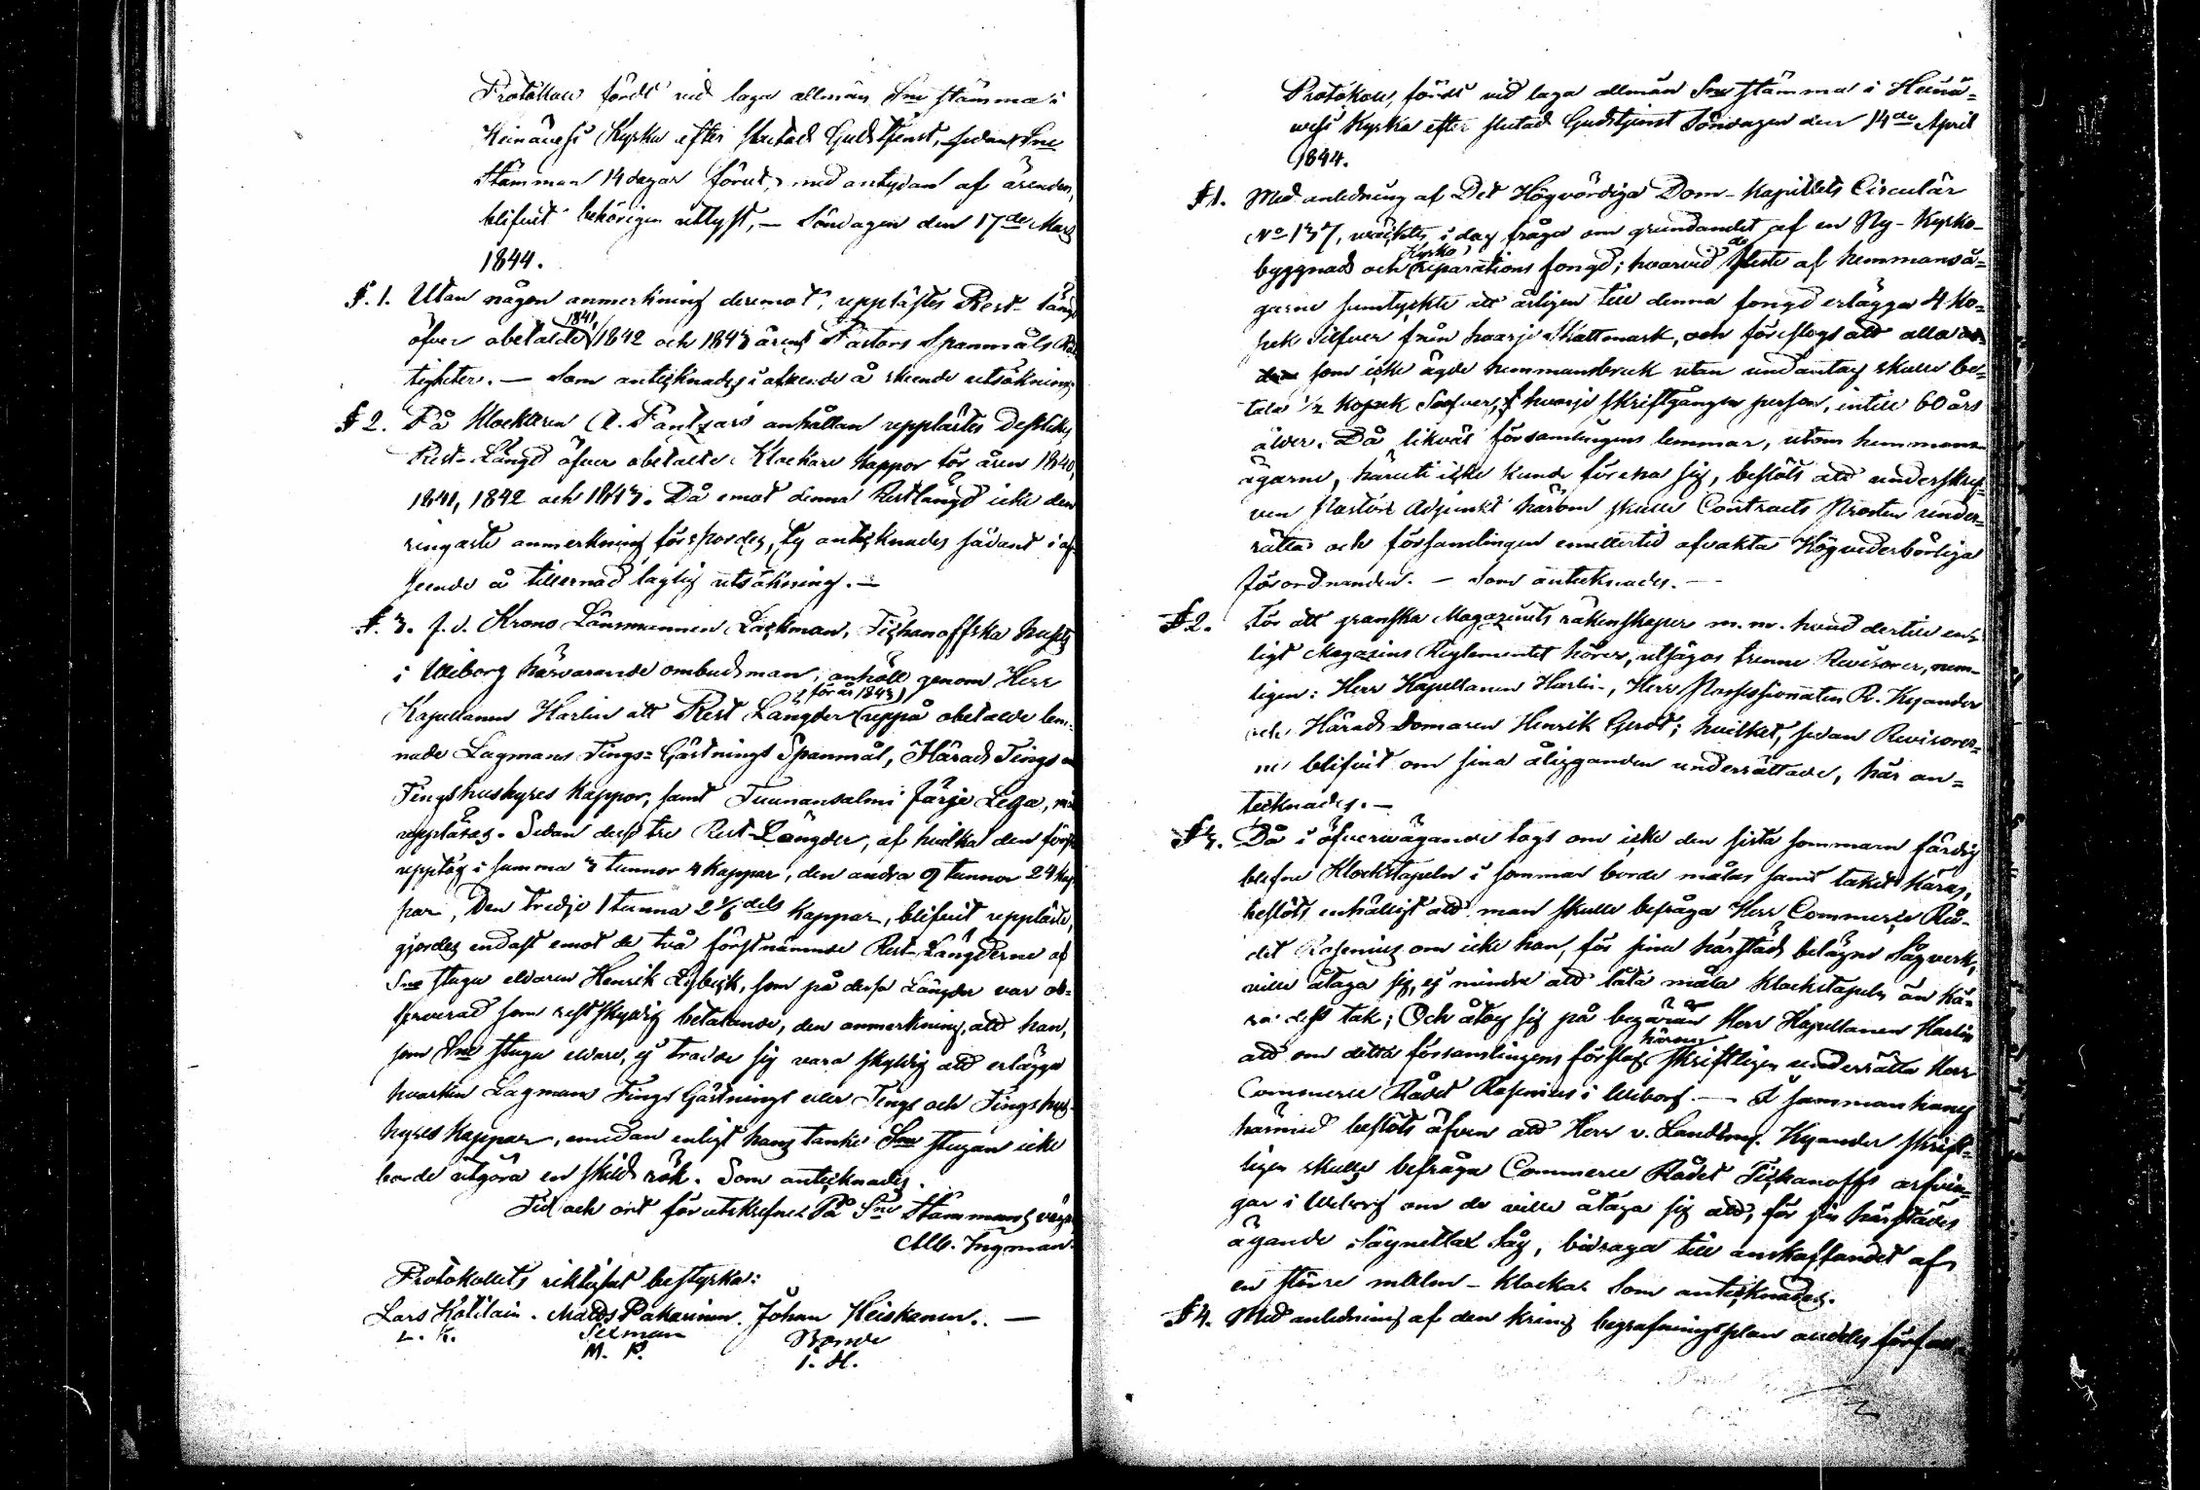 Protokoll fördt vid laga allmän Sne stämma i
Heinävesi Kyrka efter slutad Gudstjenst, sedan Sne
Stämman 14 dagar förut, med antydan af ärenden,
blifvit behörigen utlyst, — Söndagen den 17de Mars
1844.
§. 1. Utan någon anmerkning deremot, upplästes Rest-längd
öfver obetalde 1841, 1842 och 1843 årens Pastors Spanmåls Rät
tigheter. — Som antecknades i afseende å skeende utsökning
§ 2. På Klockaren C. Pantzars anhållan upplästes desslikes
Rest-Längd öfver obetalte Klockare kappor för åren 1840,
1841, 1842 och 1843. Då emot denna Restlängd icke den
ringaste anmerkning förspordes, ty antecknades sådant i af-
seende å tillernad laglig utsökning. —
§. 3. f. d. Krono Länsmannen Lackman, Tichanoffska husets
i Wiborg härvarande ombudsman, anhöll genom Herr
Kapellanen Harlin att Rest Längder (för år 1843) uppå obetalde lem-
nade Lagmans Tings-Gästnings Spanmål, Härads Tings
Tingshushyres kappor, samt Tuunansalmi färje Lega,
uppläsas. Sedan desse tre Rest-Längder, af hvilka den förste
upptog i summa 3 tunnor 4 kappar, den andra 9 tunnor 24 kap
par, Den tredje 1 tunna 2 dels kappar, blifvit uppläste,
gjordes endast emot de två förstnämnde Rest-Längderne af
Sne stugu elvaren Henrik Lybeck, som på desse Längder var ob-
serverad som restskyldig betalande, den anmerkning, att han,
som Sne stugu elvare, ej trodde sig vara skyldig att erlägga
hvarken Lagmans Tings Gästnings eller Tings och Tingshus-
hyres kappar, emedan enligt hans tanke Sne stugan icke
borde utgöra en skild rök. Som antecknades.
Tid och ort förutskrefne. På Sne Stämmans vägnar
Alb. Ingman.
Protokollets riktighet bestyrka:
Lars Kolilain. Matts Pakarinen. Johan Heiskanen. —
L. K. Sexman Bonde
M. P. I. H.
Protokoll, fördt vid laga allmän Sne stämma i Heinä-
wesi Kyrka efter slutad Gudstjenst Söndagen den 14de April
1844.
§ 1. Med anledning af Det Högvördiga Dom-Kapitlets Circulär
No 137, väcktes i dag fråga om grundandet af en Ny-Kyrko-
byggnads och Kyrko reparations fongd; hvarvid de fleste af hemmansä-
garne samtyckte att årligen till denna fongd erlägga 4 ko-
pek Silfver från hvarje Skattmark, och föreslogs att alla
som icke ägde hemmansbruk utan undantag skulle be-
tala 1/2 kopek Silfver, f hvarje skriftgången person, intill 60 års
ålder. Då likväl församlingens lemmar, utom hemmans-
ägarne, häruti icke kunde förena sig, beslöts att underskref-
ven Pastors Adjunkt härom skulle Contracts Prosten under-
rätta och församlingen emellertid afvakta Högvederbörliga
förordnanden. — Som antecknades. —
§ 2. För att granska Magazinets räkenskaper m. m. hvad dertill en-
ligt Magazins Reglementet hörer, utsågos trenne Revisorer, nem-
ligen: Herr Kapellanen Harlin, Herr Possessionaten R. Kyander
och Härads Domaren Henrik Gerdt; hvilket, sedan Revisorer-
ne blifvit om sina åligganden underrättade, här an-
tecknades. —
§ 3. Då i öfvervägande togs om icke den sista sommaren färdig
blefne Klockstapeln i sommar borde målas samt taket käras,
beslöts enhälligt att man skulle befråga Herr Commerce Rå-
det Rosenius om icke han, för sina härstädes belägne Sågverk,
ville åtaga sig, ej mindre att låta måla klockstapeln än kä-
ra dess tak; Och åtog sig på begäran Herr Kapellanen Harlin
att om detta församlingens förslag härom skriftligen underrätta Herr
Commerce Rådet Rosenius i Wiborg. — I sammanhang
härmed beslöts äfven att Herr v. Landtm. Kyander skrift-
ligen skulle befråga Commerce Rådet Tichanoffs arfvin-
gar i Wiborg om de ville åtaga sig att, för sin härstädes
ägande såg, bidraga till anskaffandet af
en större malm-klocka. Som antecknades.
§ 4. Med anledning af den kring begrafningsplan